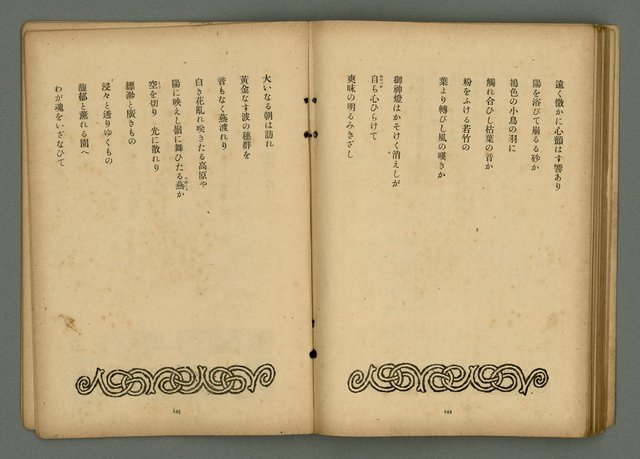 遠く微かに心顫はす響あり
陽を浴びて崩るる砂か
鴇色の小鳥の羽に
觸れ合ひし枯葉の音か
粉をふける若竹の
葉より轉びし風の嘆きか
御神燈はかそけく消えしが
自ら心ひらけて
爽昧の明るみきざし
244
大いなる朝は訪れ
黄金なす波の穗群を
音もなく燕渡れり
白き花亂れ咲きたる高原や
陽に映えし嶺に舞ひたる燕か
空を切り 光に散れり
縹渺と廣きもの
浸々と透りゆくもの
馥郁と薫れる園へ
わが魂をいざなひて
245